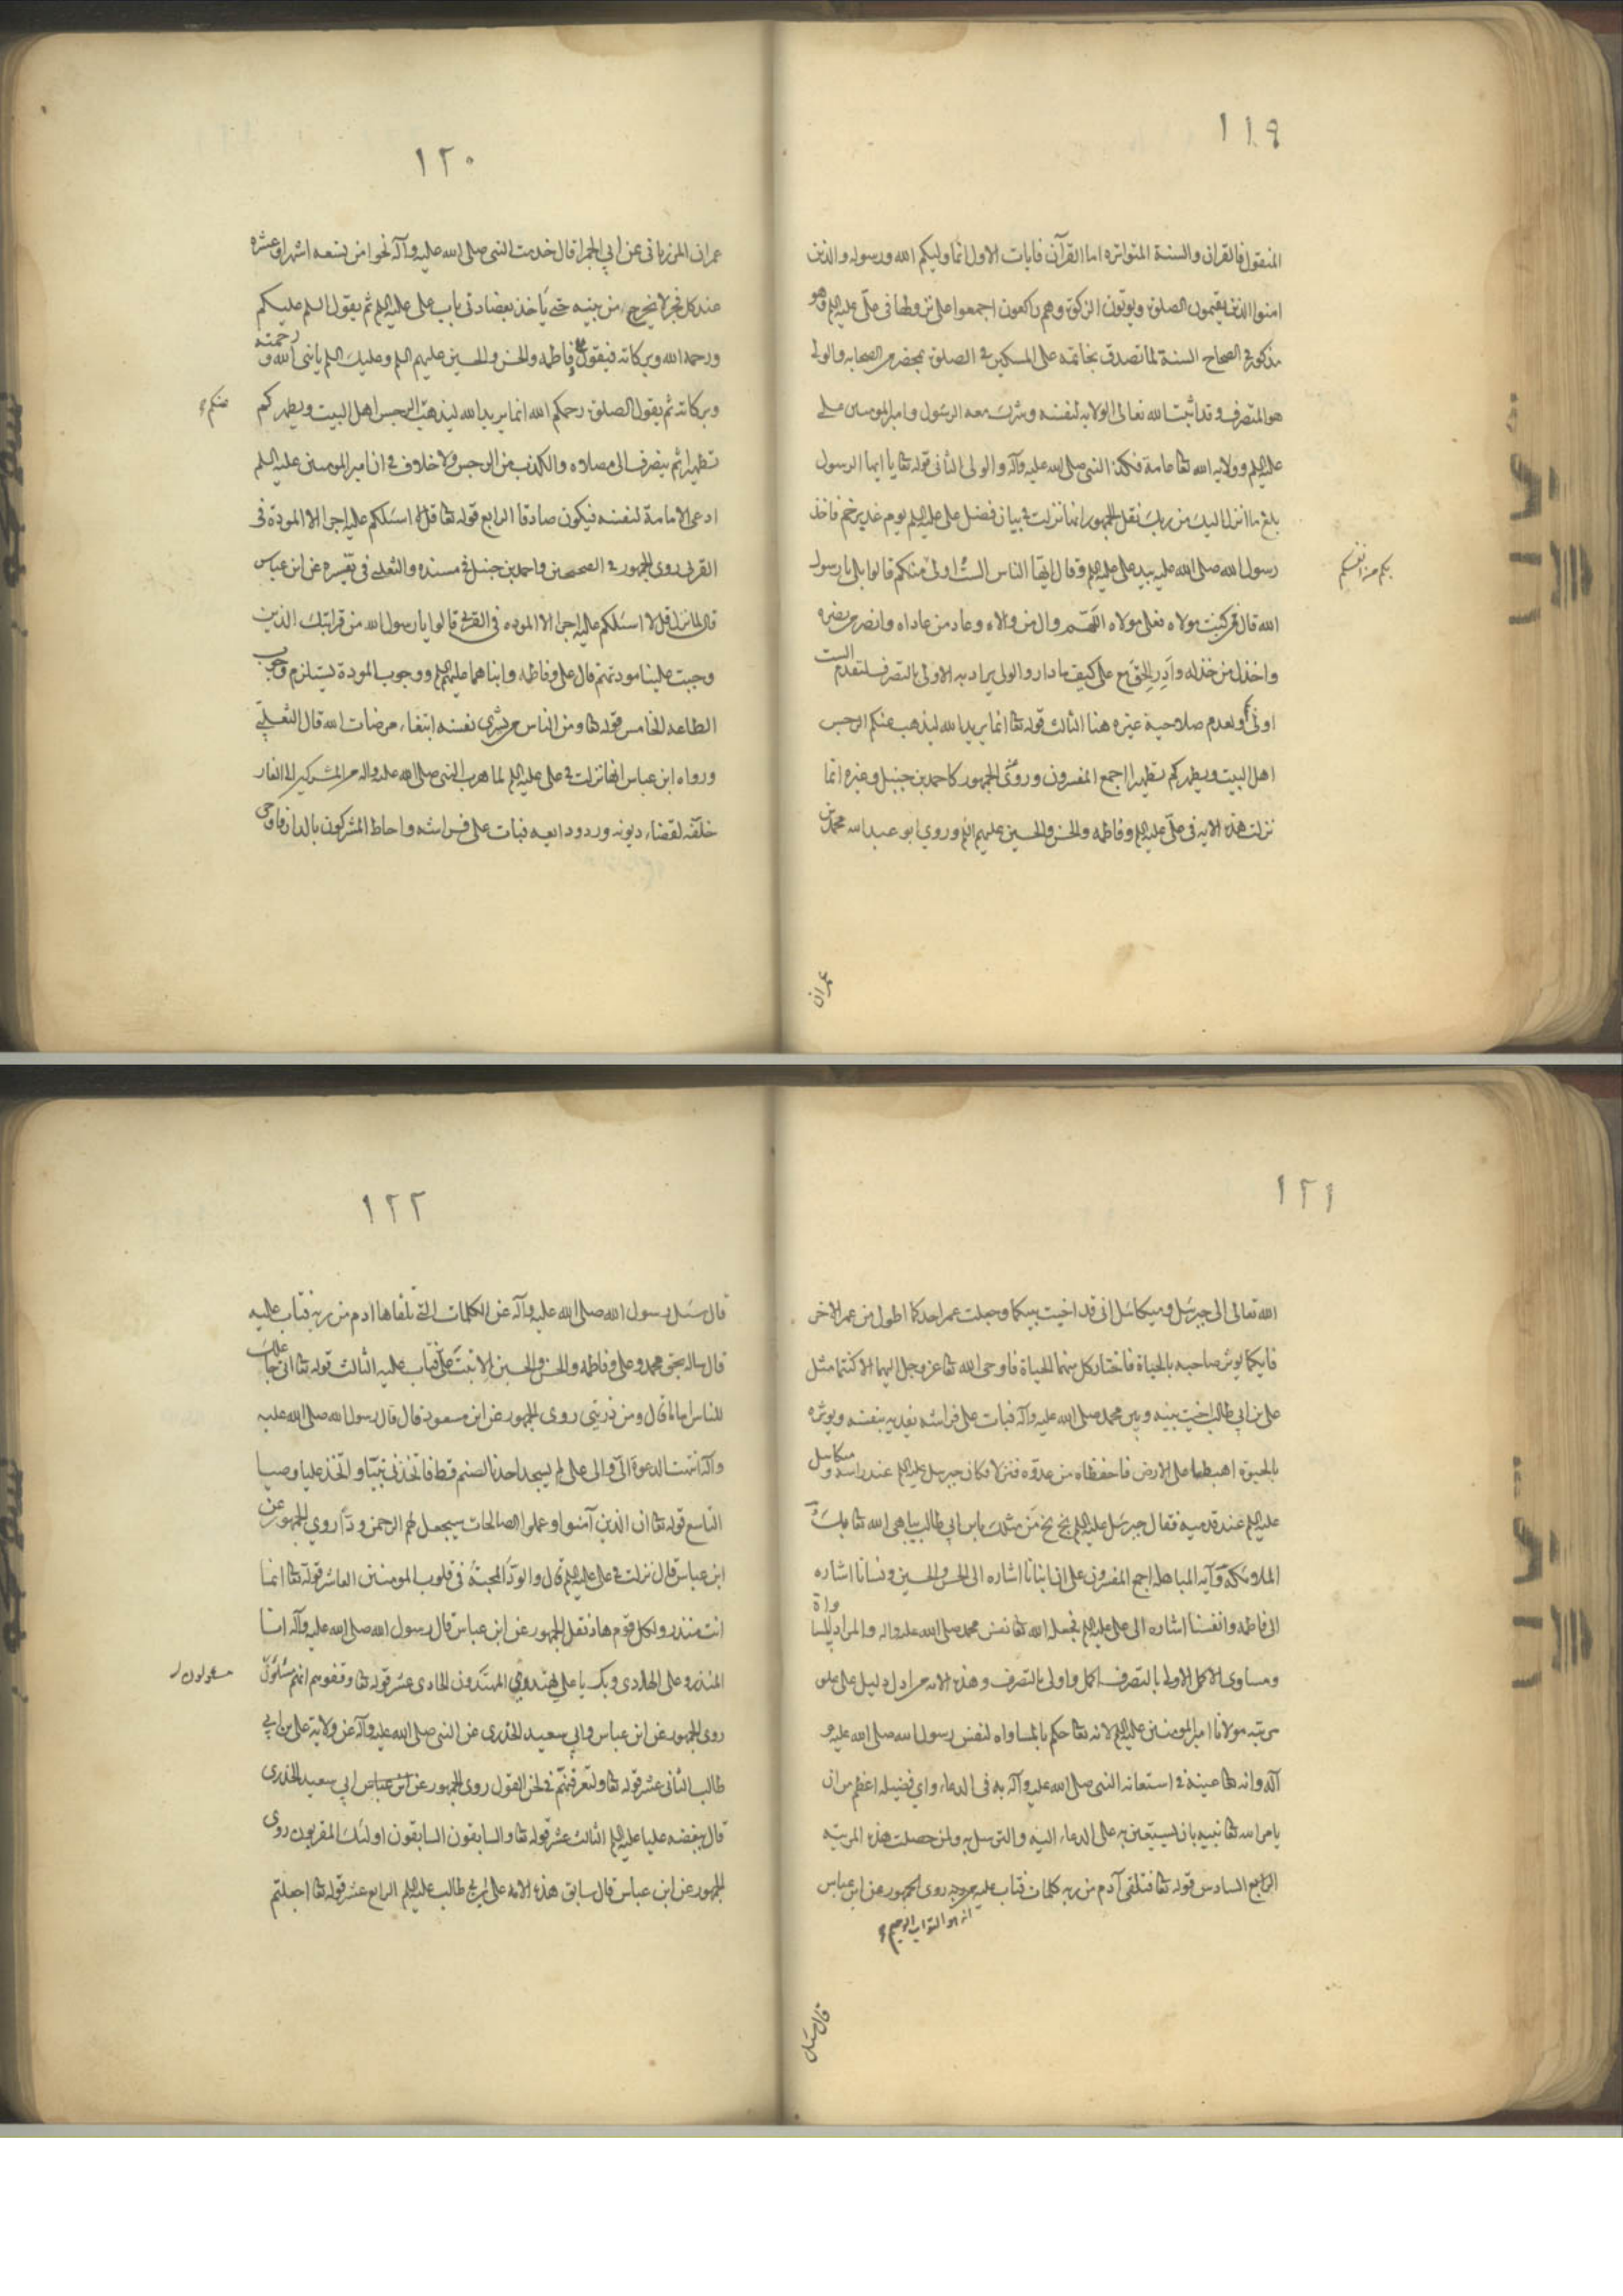 ١١٩
المنقول فالقران والسنة المتواتره اما القرآن فايات الاول انما وليكم الله ورسوله والذين
امنوا الذين يقيمون الصلوة ويوتون الزكوة وهم راكعون اجمعوا على نزولها في علي عليه السلم وهو
مذكور في الصحاح الستة لما تصدق بخاتمه على المسكين في الصلوة بمحضر من الصحابه والولي
هو المتصرف وقد اثبت الله تعالى الولاية لنفسه وشرك معه الرسول وامير المومنين علي
عليه السلم وولاية الله تعا عامة فكذا النبي صلى الله عليه وآله والولي الثاني قوله تعا يا ايها الرسول
بلغ ما انزل اليك من ربك نقل الجمهور انها نزلت في بيان فضل علي عليه السلم يوم غدير خم فاخذ
رسول الله صلى الله عليه بيد علي عليه السلم وقال ايها الناس الست اولى منكم قالوا بلى يا رسول
بكم من انفسكم
الله قال من كنت مولاه فعلي مولاه اللهم وال من والاه وعاد من عاداه وانصر من نصره
واخذل من خذله وادر الحق مع علي كيف ما دار والولي يراد به الاولى بالتصرف لتقدم الست
اولى ولعدم صلاحية غيره هنا الثالث قوله تعا انما يريد الله ليذهب عنكم الرجس
اهل البيت ويطهركم تطهيرا اجمع المفسرون وروى الجمهور كاحمد بن حنبل وغيره انما
نزلت هذه الايه في علي عليه السلم وفاطمه والحسن والحسين عليهم السلم وروي ابو عبد الله محمد بن
عمران
١٢٠
عمران المرزباني عن ابي الحمرا قال خدمت النبي صلى الله عليه وآله نحوا من تسعه اشهر او عشره
عند كل فجر لا يخرج من بيته حتى ياخذ بعضادتي باب علي عليه السلم ثم يقول السلم عليكم
ورحمة الله وبركاته فيقول علي وفاطمه والحسن والحسين عليهم السلم وعليك السلم يا نبي الله ورحمته
وبركاته ثم يقول الصلوة رحمكم الله انما يريد الله ليذهب الرجس اهل البيت ويطهركم
عنكم
تطهيرا ثم ينصرف الى مصلاه والكذب من الرجس ولا خلاف في ان امير المومنين عليه السلم
ادعى الامامة لنفسه فيكون صادقا الرابع قوله تعا قل لا اسئلكم عليه اجرا الا المودة في
القربى روى الجمهور في الصحيحين واحمد بن حنبل في مسنده والثعلبي في تفسيره عن ابن عباس
قال لما نزل قل لا اسئلكم عليه اجرا الا الموده في القربى قالوا يا رسول الله من قرابتك الذين
وجبت علينا مودتهم قال علي وفاطمه وابناهما عليهم السلم ووجوب المودة يستلزم وجوب
الطاعه الخامس قوله تعا ومن الناس من يشري نفسه ابتغاء مرضات الله قال الثعلبي
ورواه ابن عباس انها نزلت في علي عليه السلم لما هرب النبي صلى الله عليه واله من المشركين الى الغار
خلفه لقضاء ديونه ورد ودايعه فبات على فراشه واحاط المشركون بالدار فاوحى
١٢١
الله تعالى الى جبرئيل وميكائيل اني قد اخيت بينكما وجعلت عمر احدكما اطول من عمر الاخر
فايكما يوثر صاحبه بالحياة فاختار كل منهما الحياة فاوحى الله تعا عز وجل اليهما الا كنتما مثل
علي بن ابي طالب اخيت بينه وبين محمد صلى الله عليه وآله فبات على فراشه يفديه بنفسه ويوثره
بالحيوة اهبطا على الارض فاحفظاه من عدوه فنزلا فكان جبرئيل عليه السلم عند راسه وميكائيل
عليه السلم عند قدميه فقال جبرئيل عليه السلم بخ بخ من مثلك يا بن ابي طالب يباهي الله تعا بك
الملائكة وآيه المباهله اجمع المفسرون على ان ابنائنا اشاره الى الحسن والحسين ونسائنا اشاره
الى فاطمه وانفسنا اشاره الى علي عليه السلم فجعله الله تعا نفس محمد صلى الله عليه واله والمراد المساواة
ومساوى الاكمل الاولى بالتصرف اكمل واولى بالتصرف وهذه الايه من ادل دليل على علو
مرتبه مولانا امير المومنين عليه السلم لانه تعا حكم بالمساواه لنفس رسول الله صلى الله عليه و
آله وانه تعا عينه في استعانه النبي صلى الله عليه وآله به في الدعاء واي فضيله اعظم من ان
يامر الله تعا نبيه بان يستعين به على الدعاء اليه والتوسل به ولمن حصلت هذه المرتبه
الرابع السادس قوله تعا فتلقى آدم من ربه كلمات فتاب عليه روى الجمهور عن ابن عباس
انه هو التواب الرحيم
قال سئل
١٢٢
قال سئل رسول الله صلى الله عليه وآله عن الكلمات التي تلقاها ادم من ربه فتاب عليه
قال ساله بحق محمد وعلي وفاطمه والحسن والحسين الا تبت علي فتاب عليه الثالث قوله تعا اني جاعلك
للناس اماما قال ومن ذريتي روى الجمهور عن ابن مسعود قال قال رسول الله صلى الله عليه
وآله انتهت الدعوة الي والى علي لم يسجد احدنا لصنم قط فاتخذني نبيا واتخذ عليا وصيا
التاسع قوله تعا ان الذين آمنوا وعملوا الصالحات سيجعل لهم الرحمن ودا روي الجمهور عن
ابن عباس قال نزلت في علي عليه السلم قال والود المحبة في قلوب المومنين العاشر قوله تعا انما
انت منذر ولكل قوم هاد نقل الجمهور عن ابن عباس قال رسول الله صلى الله عليه وآله انا
المنذر وعلي الهادي وبك يا علي يهتدي المهتدون الحادى عشر قوله تعا وقفوهم انهم مسئولون
مسئولون
روى الجمهور عن ابن عباس وابي سعيد الخدري عن النبي صلى الله عليه وآله عن ولاية علي بن ابي
طالب الثاني عشر قوله تعا ولتعرفنهم في لحن القول روى الجمهور عن ابن عباس ابي سعيد الخدري
قال ببغضه عليا عليه السلم الثالث عشر قوله تعا والسابقون السابقون اولئك المقربون روى
الجمهور عن ابن عباس قال سابق هذه الامه علي بن ابي طالب عليه السلم الرابع عشر قوله تعا اجعلتم